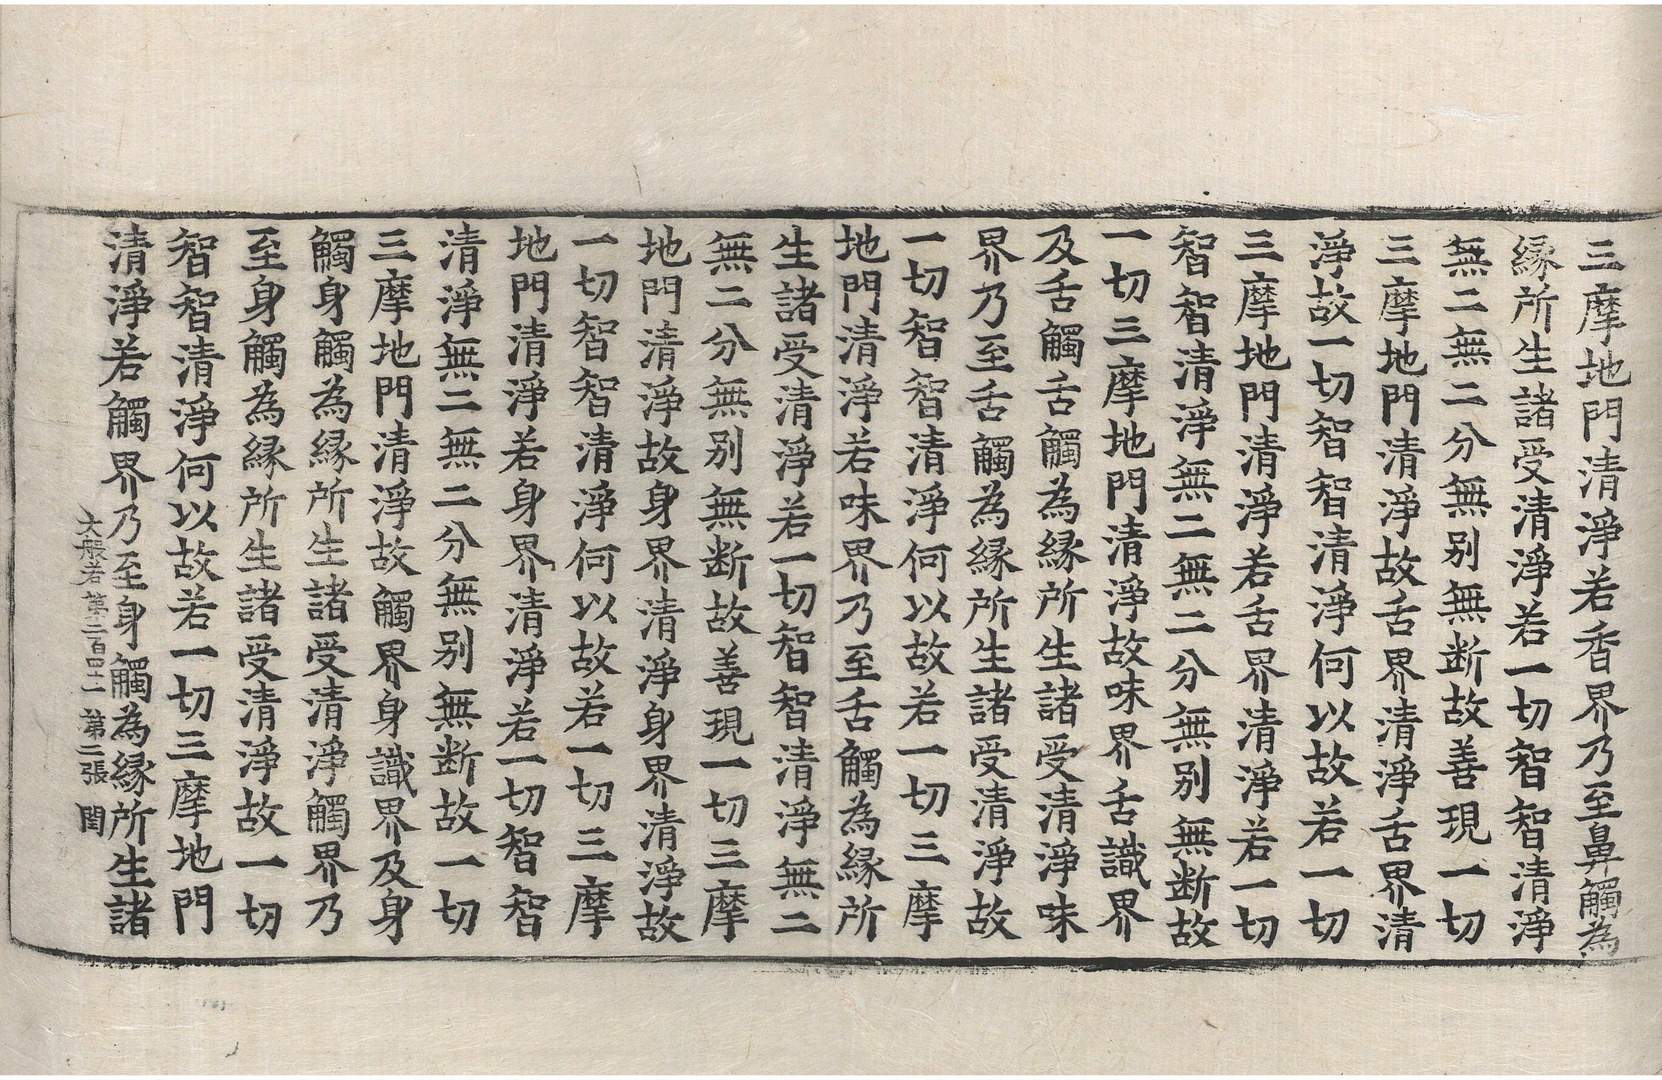 三摩地門清淨若香界乃至鼻觸為
縁所生諸受清淨若一切智智清淨
無二無二分無別無断故善現一切
三摩地門清淨故舌界清淨舌界清
淨故一切智智清淨何以故若一切
三摩地門清淨若舌界清淨若一切
智智清淨無二無二分無別無断故
一切三摩地門清淨故味界舌識界
及舌觸舌觸為縁所生諸受清淨味
界乃至舌觸為縁所生諸受清淨故
一切智智清淨何以故若一切三摩
地門清淨若味界乃至舌觸為縁所
生諸受清淨若一切智智清淨無二
無二分無別無断故善現一切三摩
地門清淨故身界清淨身界清淨故
一切智智清淨何以故若一切三摩
地門清淨若身界清淨若一切智智
清淨無二無二分無別無断故一切
三摩地門清淨故觸界身識界及身
觸身觸為縁所生諸受清淨觸界乃
至身觸為縁所生諸受清淨故一切
智智清淨何以故若一切三摩地門
清淨若觸界乃至身觸為縁所生諸
大般若第二百四十二 第二張 閏